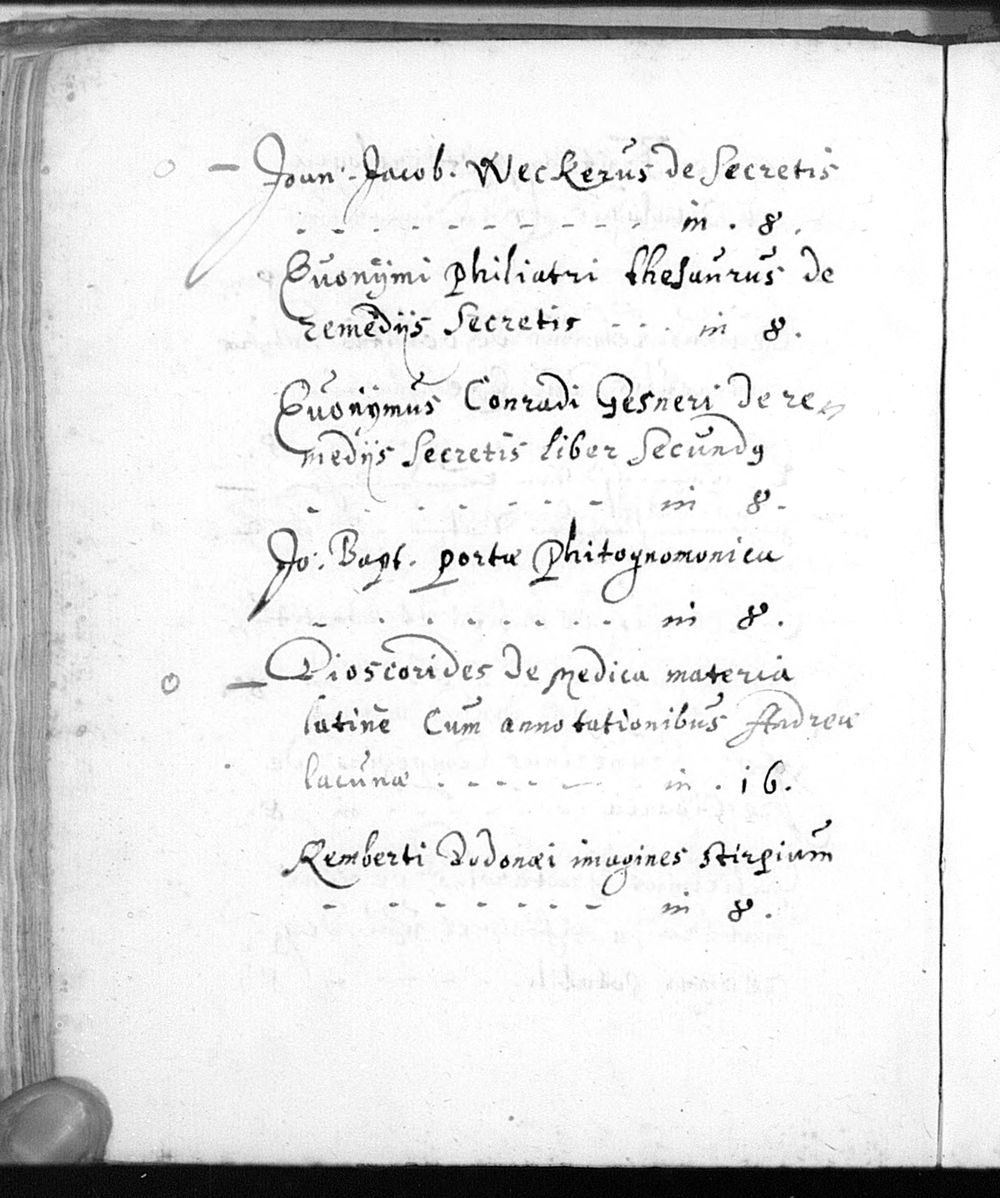 o — Joan. Jacob. Weckerus de Secretis
- - - - - - - - - - - in . 8.
Euonÿmi Philiatri thesaurus de
remedijs Secretis - - . in 8.
Euonÿmus Conradi Gesneri de re=
medijs Secretis liber Secundꝰ
- - - - - - - in 8.
Jo: Bapt. portæ Phitognomonica
- - - - - - - in 8.
o — Dioscorides de medica materia
latine Cum annotationibus Andreæ
lacunæ - - - - - in . 16.
Remberti Dodonæi imagines stirpium
- - - - - - - in 8.